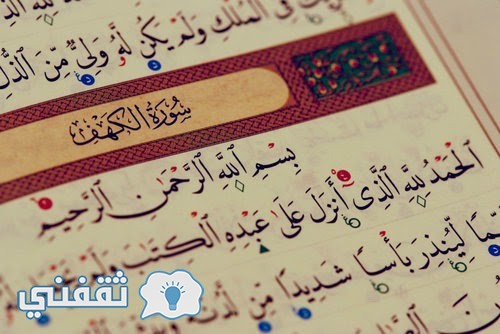 فِى ٱلْمُلْكِ وَلَمْ يَكُن لَّهُۥ وَلِىٌّ مِّنَ ٱلذُّلِّ
سُورَةُ الكَهْفِ
بِسْمِ ٱللَّهِ ٱلرَّحْمَٰنِ ٱلرَّحِيمِ
ٱلْحَمْدُ لِلَّهِ ٱلَّذِىٓ أَنزَلَ عَلَىٰ عَبْدِهِ ٱلْكِتَٰبَ وَلَمْ
لِّيُنذِرَ بَأْسًا شَدِيدًا مِّن لَّدُنْهُ
ثقفني